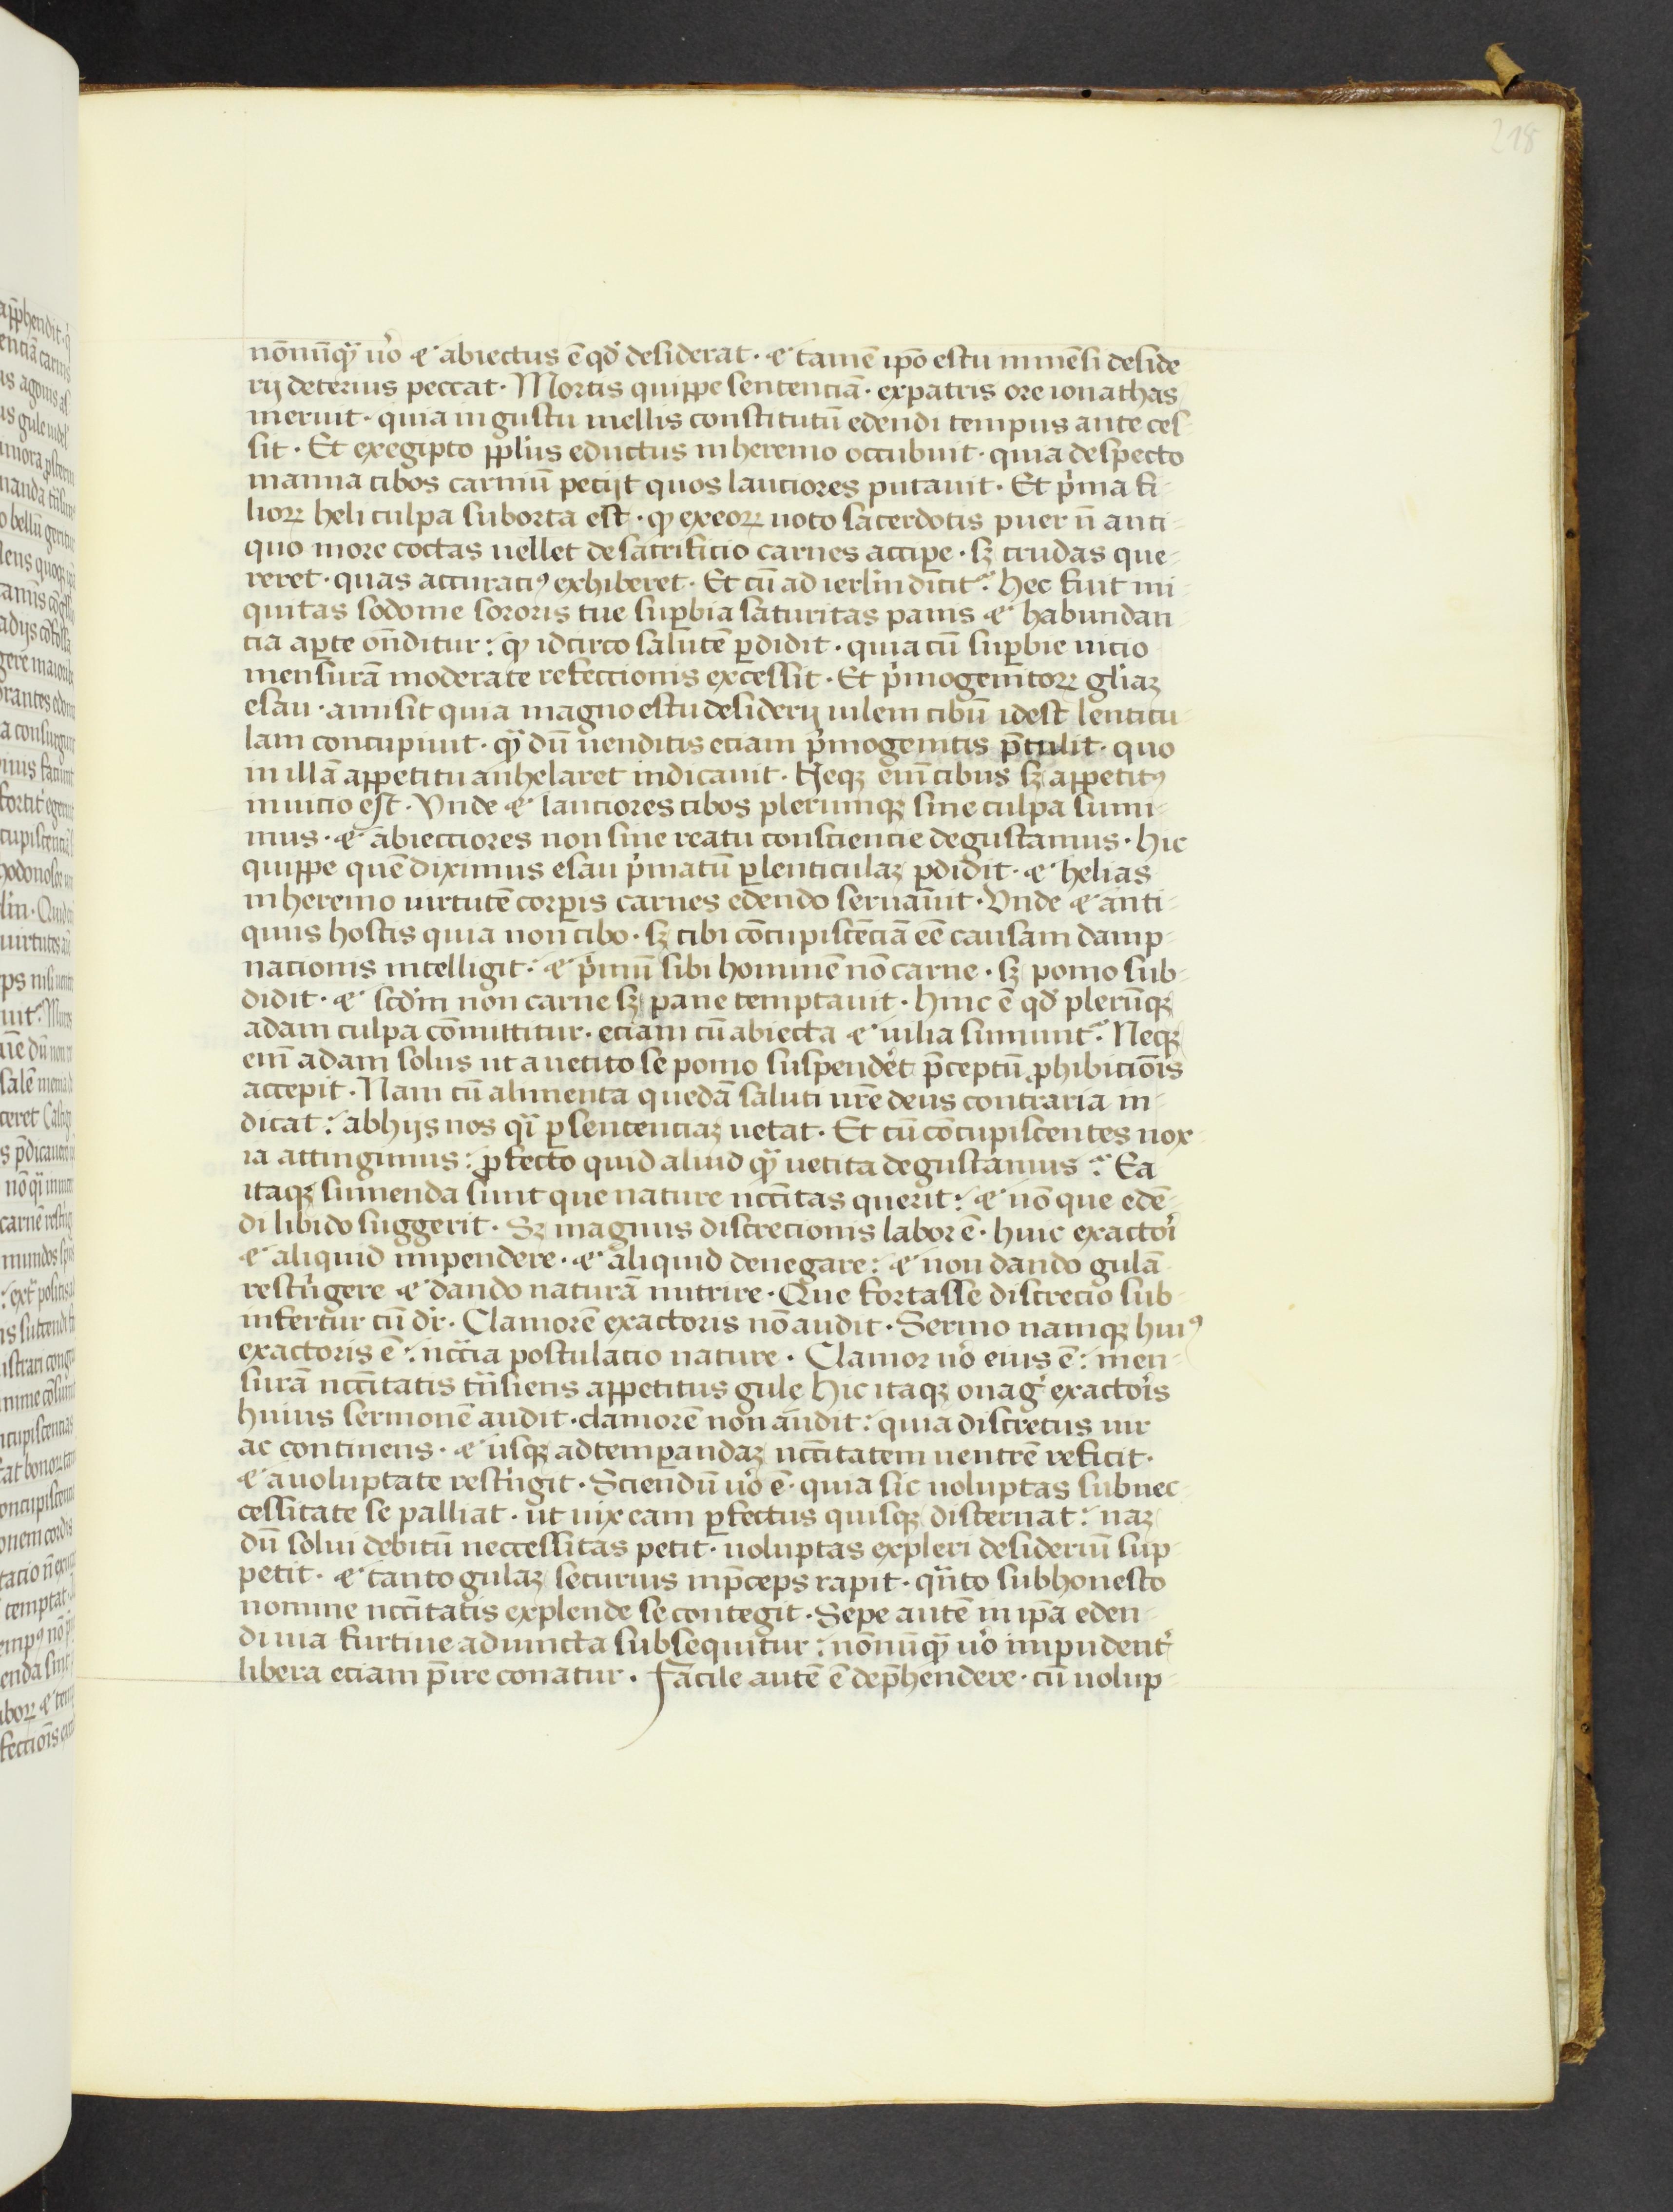 218
nōnūqᷓ u̓o & abiectus ē qd̓ desiderat · & tamē ip̄o estu inmēsi deside
rij deterius peccat · Mortis quippe sentenciā · expatris ore ionathas
meruit · quia ingustu mellis constitutū edendi tempus ante ces-
sit · Et exegipto ppl̓us eductus inheremo occubuit · quia despecto
manna cibos carniū petijt quos lauciores putauit · Et p̓ma fi-
lioꝝ heli culpa suborta est · ꝙ exeoꝝ uoto sacerdotis puer n̄ anti-
quo more coctas uellet desacrificio carnes accipe · sꝫ crudas que-
reret · quas accuraciꝰ exhiberet · Et cū ad ierl̓m dicit᷑ : hec fuit ini-
quitas sodome sororis tue suꝑbia saturitas panis & habundan-
cia aꝑte on̄ditur : ꝙ idcirco salutē ꝑdidit · quia cū suꝑbie uicio
mensurā moderate refeccionis excessit · Et p̓mogenitoꝝ gl̓iaꝫ
esau · amisit quia magno estu desiderij uilem cibū idest lenticu-
lam concupiuit · qᷓ dū uenditis eciam p̓mogenitis p̄tulit · quo
in illā appetitu anhelaret indicauit · Neqꝫ eni̅ cibus sꝫ appetitꝰ
inuicio est · Vnde & lauciores cibos plerumqꝫ sine culpa sumi-
mus · & abiecciores non sine reatu consciencie degustamus · hic
quippe quē diximus esau p̓matū ꝑlenticulaꝫ ꝑdidit · & helias
inheremo uirtutē corꝑis carnes edendo seruauit · Vnde & anti-
quus hostis quia non cibo · sꝫ cibi cōcupiscēciā eē causam damp-
nacionis intelligit : & p̓mū sibi hominē nō carne · sꝫ pomo sub-
didit · & scd̓m non carne sꝫ pane temptauit · hinc ē qd̓ plerūqꝫ
adam culpa cōmittitur · eciam cū abiecta & uilia sumunt᷑ · Neqꝫ
eni̅ adam solus ut a uetito se pomo suspend̓et p̄ceptū ꝓhibicio̅is
accepit · Nam cū alimenta quedā saluti nr̄e deus contraria in-
dicat : abhijs nos qᷓi ꝑsentenciaꝫ uetat · Et cū cōcupiscentes nox-
ia attingimus : ꝓfecto quid aliud qᷓ uetita degustamus ? Ea
itaqꝫ sumenda sunt que nature nccītas querit : & nō que edē-
di libido suggerit · Sꝫ magnus discrecionis labor ē · huic exactor̓i
& aliquid impendere · & aliquid denegare : & non dando gulā
rest̓ngere & dando naturā nutrire · Que fortasse discrecio sub-
infertur cū dr̄ · Clamorē exactoris nō audit · Sermo namqꝫ huiꝰ
exactoris ē : nccīa postulacio nature · Clamor u̓o eius ē : men-
surā nccītatis tn̄siens appetitus gule hic itaqꝫ onag̓ exactor̓is
huius sermonē audit · clamorē non audit : quia discretus uir
ac continens · & usqꝫ adtemꝑandaꝫ nccītatem uentrē reficit ·
& auoluptate rest̓ngit · Sciendū u̓o ē · quia sic uoluptas subnec-
cessitate se palliat · ut uix eam ꝑfectus quisqꝫ discernat : naꝫ
dū solui debitū neccessitas petit · uoluptas expleri desideriū sup-
petit · & tanto gulaꝫ securius inp̄ceps rapit · qᷓnto subhonesto
nomine nccītatis explende se contegit · Sepe autē in ip̄a eden-
di uia furtiue adiuncta subsequitur : nōnūqᷓ u̓o impudent̓
libera eciam p̄ire conatur · Facile autē ē dep̄hendere · cū uolup-